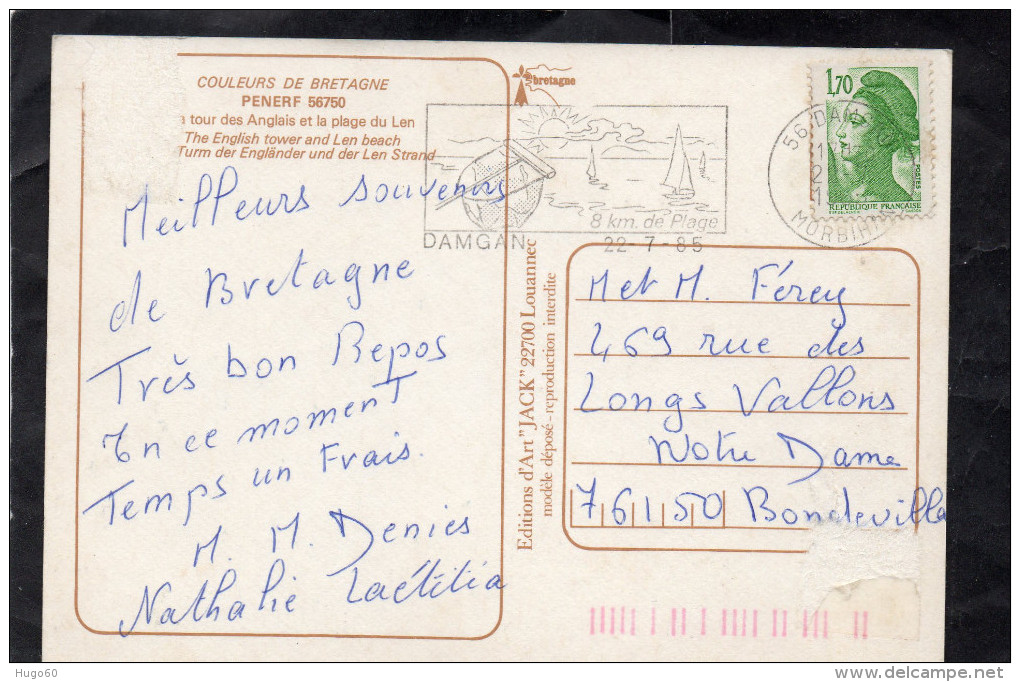 COULEURS DE BRETAGNE
PENERF 56750
a tour des Anglais et la plage du Len
The English tower and Len beach
Turm der Engländer und der Len Strand
Meilleurs souvenirs
de Bretagne
Très bon Repos
En ce moment
Temps un Frais.
M. M. Denies
Nathalie Laëtitia
bretagne
8 km. de Plage
DAMGAN 22-7-85
Editions d'Art "JACK" 22700 Louannec
modèle déposé - reproduction interdite
1,70
POSTES
RÉPUBLIQUE FRANÇAISE
56 DAM
MORBIHAN
M et M. Férey
469 rue des
Longs Vallons
Notre Dame
76150 Bondeville
Hugo60
delcampe.net